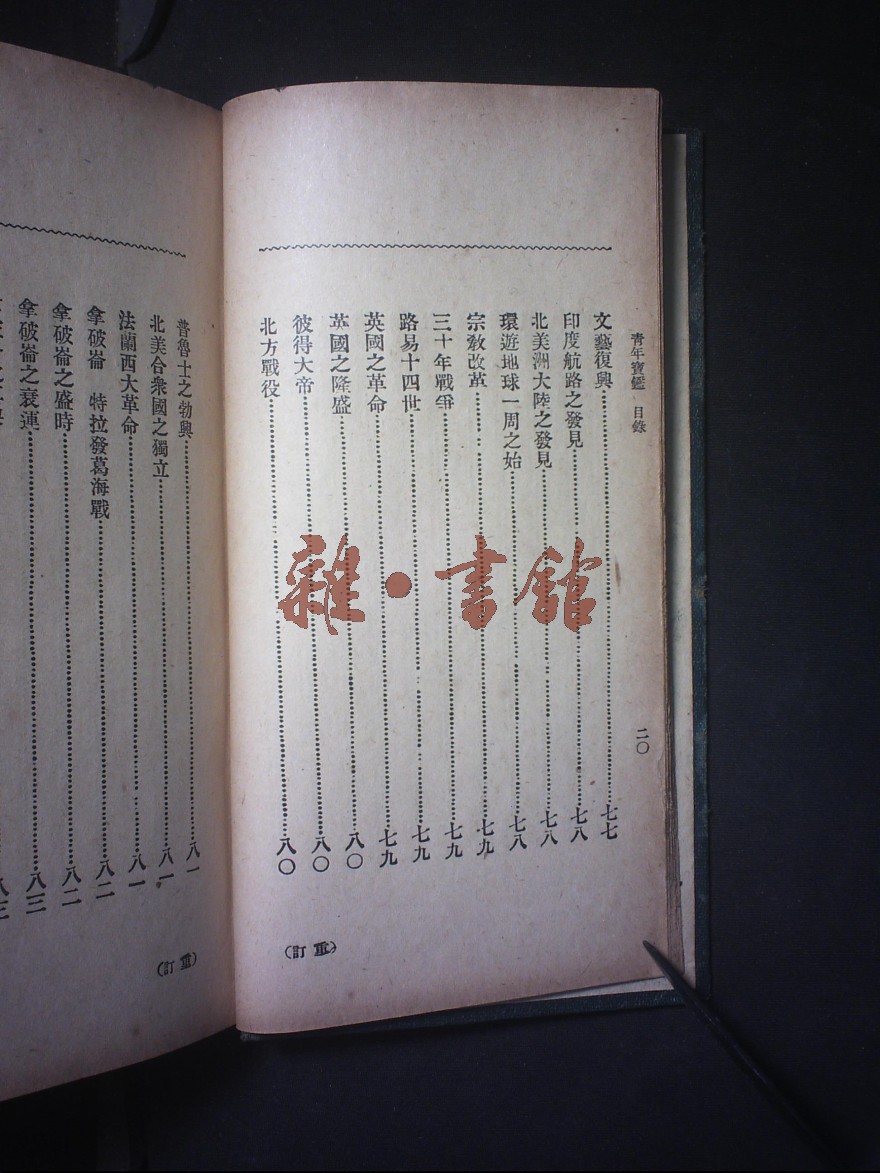 青年寶鑑 目錄 二〇
文藝復興 七七
印度航路之發見 七八
北美洲大陸之發見 七八
環遊地球一周之始 七八
宗教改革 七九
三十年戰爭 七九
路易十四世 七九
英國之革命 七九
英國之隆盛 八〇
彼得大帝 八〇
北方戰役 八〇
(重訂)
普魯士之勃興 八一
北美合衆國之獨立 八一
法蘭西大革命 八一
拿破崙 特拉發葛海戰 八二
拿破崙之盛時 八二
拿破崙之衰運 八三
八三
(重訂)
雜·書館